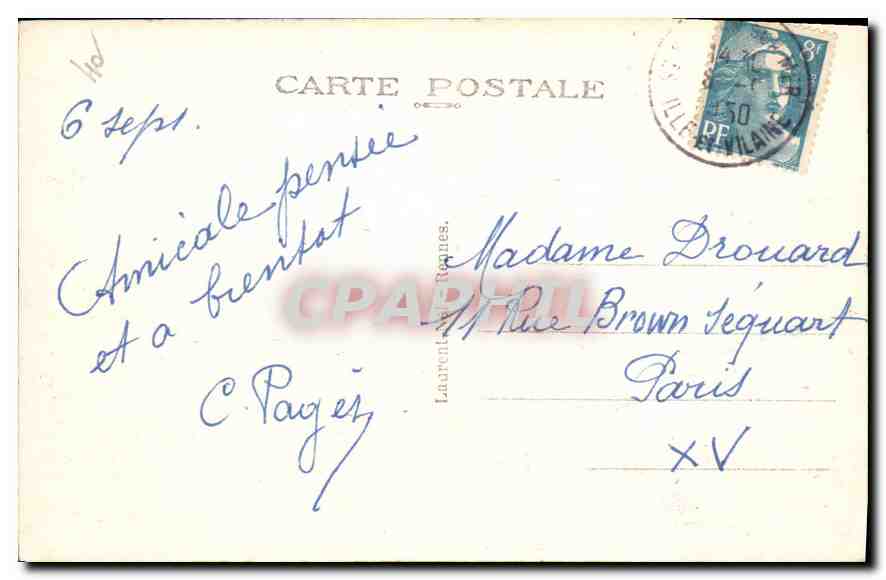 40
CARTE POSTALE
6 sept.
Amicale pensée
et a bientot
C. Pagès
Laurent Rennes.
Madame Drouard
11 Rue Brown Séquart
Paris
XV
8F
RF
MER
50
ILLE-ET-VILAINE
CPAPHIL